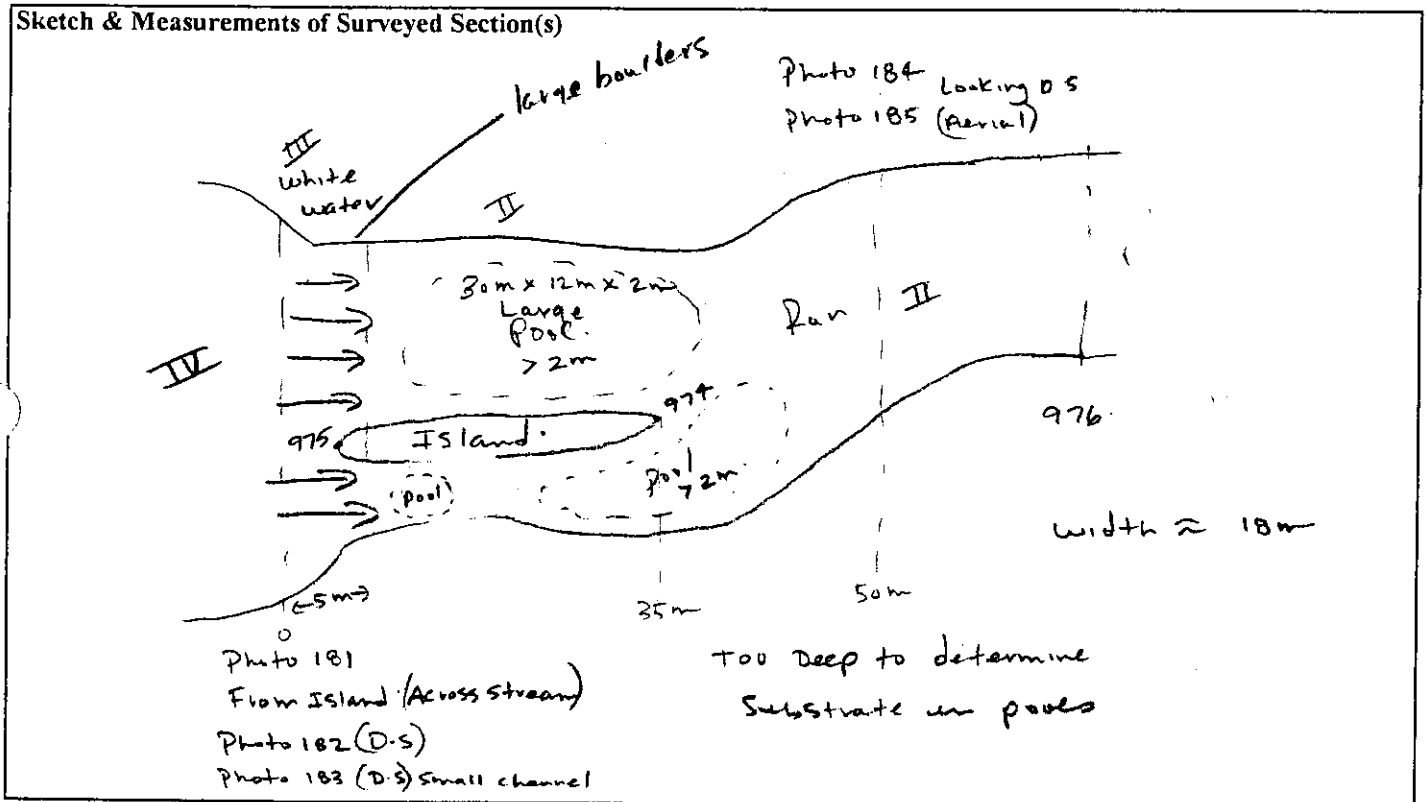 Sketch & Measurements of Surveyed Section(s)
large boulders
Photo 184 Looking D S
Photo 185 (Aerial)
III
white
water
II
30m x 12m x 2m
Large
Pool.
> 2m
Run II
IV
974
975 Island.
976.
Pool
Pool
> 2m
width ≈ 18m
←5m→
0
35m
50m
Photo 181
From Island (Across stream)
Photo 182 (D.S)
Photo 183 (D.S) Small channel
Too Deep to determine
Substrate in pools